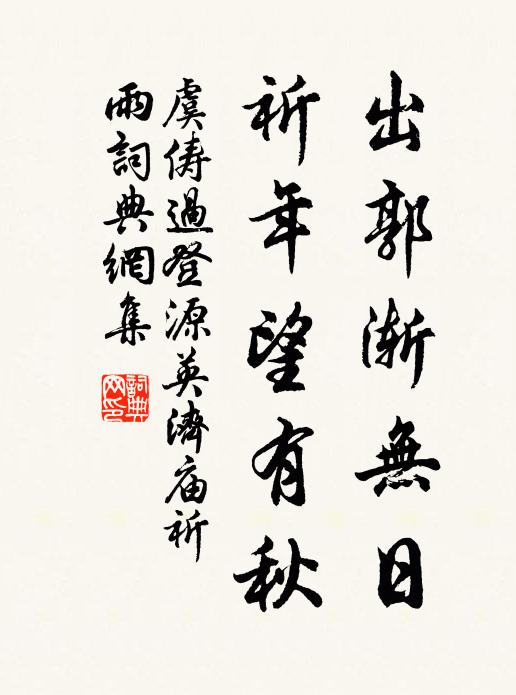 出郭漸無日
祈年望有秋
虞儔過登源英濟庙祈
雨詞典網集
詞典网印